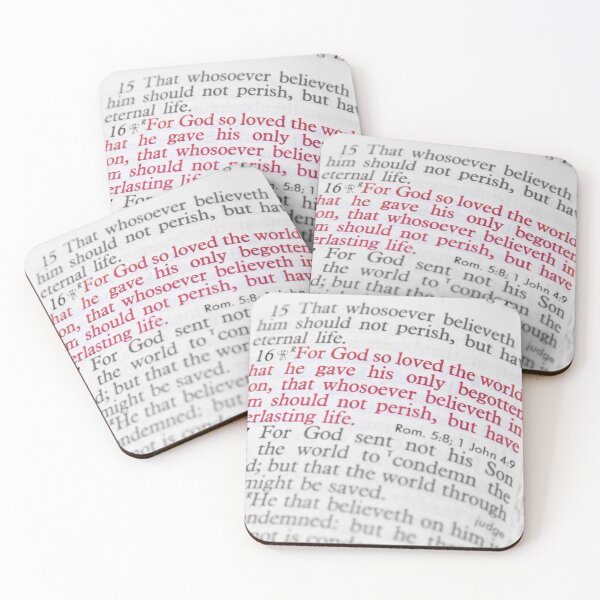 15 That whosoever believeth
him should not perish, but hav
eternal life.
16 RFor God so loved the wor
hat he gave his only
on, that whosoever believ
m should not perish,
erlasting life.
5:8; 1
For
15 That whosoever believeth
him should not perish, but hav
eternal life.
16 RFor God so loved the world
hat he gave his only begotten
on, that whosoever believeth in
m should not perish, but have
erlasting life.
Rom. 5:8; 1 John 4:9
For God sent not his Son
the world to condemn the
through
judge
15 That whosoever believeth
him should not perish, but hav
eternal life.
16 RFor God so loved the world
hat he gave his only begotten
on, that whosoever believeth in
m should not perish, but have
erlasting life.
Rom. 5:8;
For God sent not
the world to
d; but that the
might be saved.
He that believeth
ndemned: but
not is
15 That whosoever believeth
him should not perish, but hav
eternal life.
16 RFor God so loved the world
hat he gave his only begotten
on, that whosoever believeth in
m should not perish, but have
erlasting life.
Rom. 5:8; 1 John 4:9
For God sent not his Son
the world to Tcondemn the
d; but that the world through
might be saved.
judge
RHe that believeth on him i
ndemned: but he th
not is